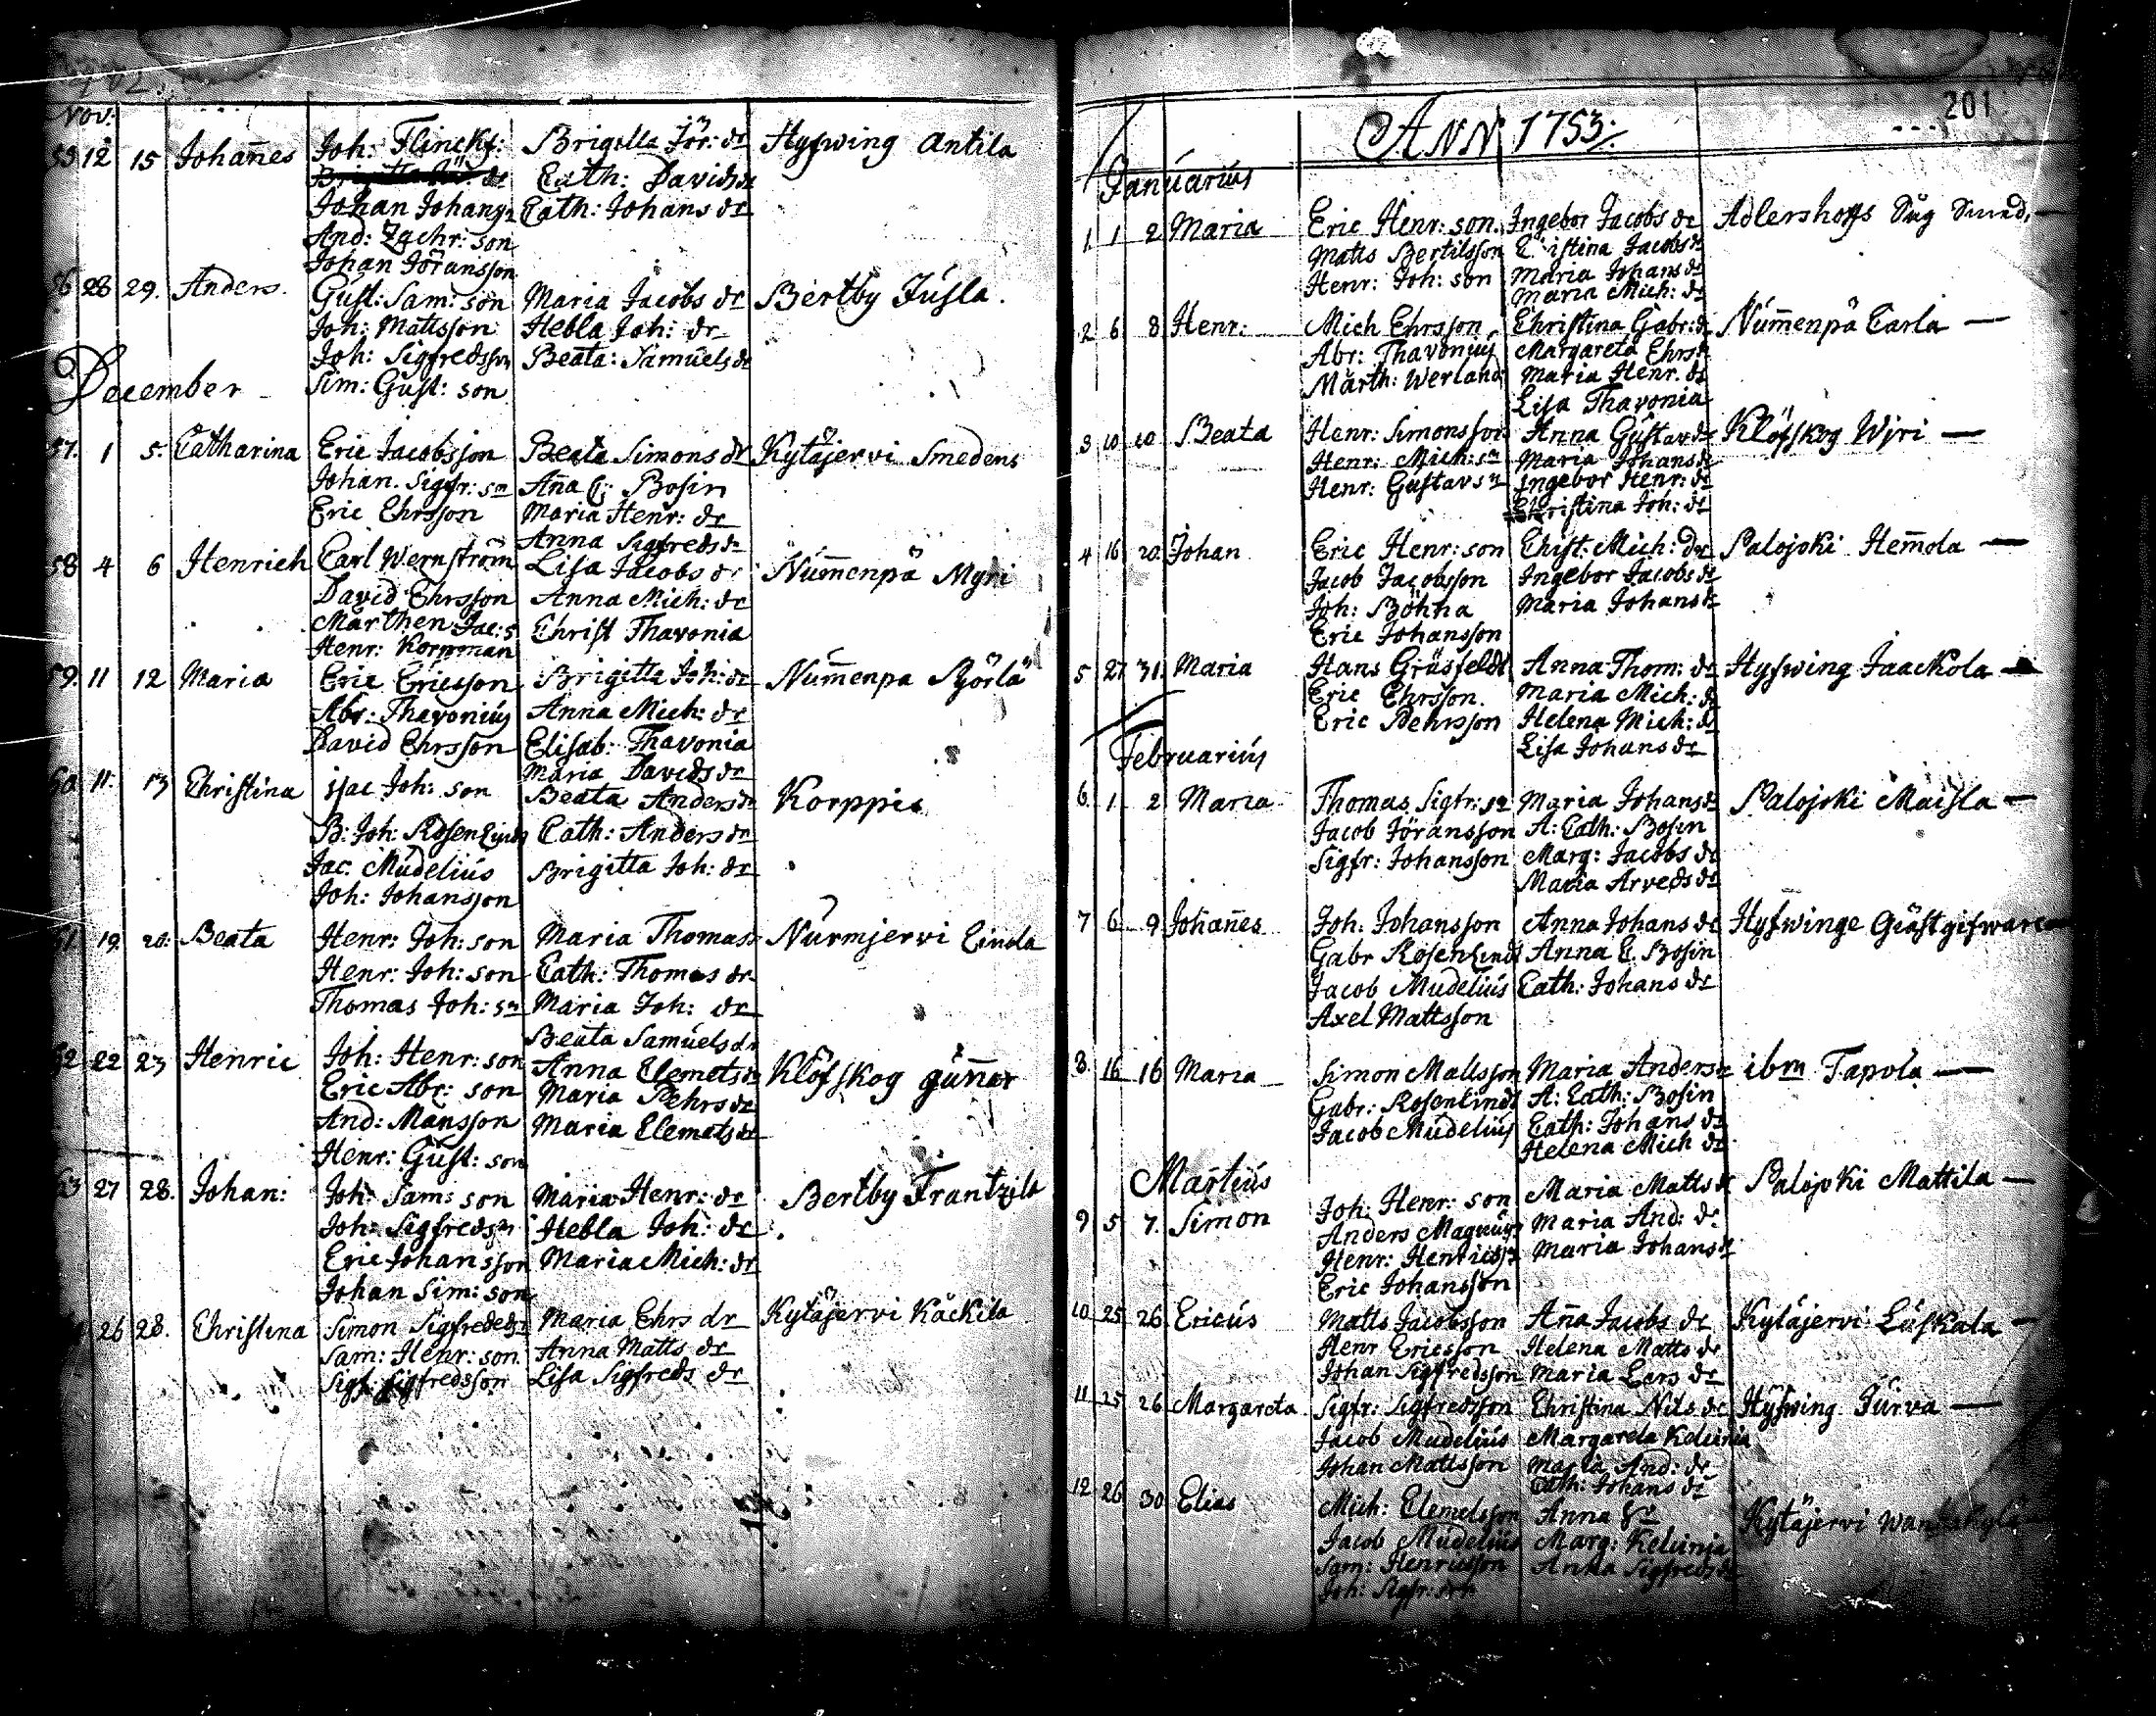 Nov:
55 12 15 Johañes Joh: Flinckf: Brigitta Jör: dr Hyfwing Antila
Cath: Davids dr
Johan Johans: Cath: Johans dr
And: Zachr: son
Johan Jöransson
56 28 29. Anders. Gust: Sam: son Maria Jacobs dr Bertby Jusla.
Joh: Mattsson Hebla Joh: dr
Joh: Sigfredsson Beata: Samuels dr
December
Sim: Gust: son
57. 1 5. Catharina Eric Jacobsson Beata Simons dr Kytäjervi Smedens
Johan. Sigfr: sn Aña C: Bosin
Eric Ehrsson Maria Henr: dr
Anna Sigfreds dr
58 4 6 Henrich Carl Wernström Lisa Jacobs dr Num̄enpä Myri
David Ehrsson Anna Mich: dr
Mårthen Jac: s Christ Thavonia
Henr: Korpman
59. 11 12 Maria Eric Ericsson Brigitta Joh: dr Num̄enpä Pyörlä
Abr: Thavonius Anna Mich: dr
David Ehrsson Elisab: Thavonia
Maria Davids dr
60 11. 13 Christina Isac Joh: son Beata Anders dr Korppis
B: Joh: Rosenlind Cath: Anders dr
Jac. Mudelius Brigitta Joh: dr
Joh: Johansson
61 19. 20. Beata Henr: Joh: son Maria Thomas dr Nurmjervi Einola
Henr: Joh: son Cath: Thomas dr
Thomas Joh: sn Maria Joh: dr
Beata Samuels dr
62 22 23 Henric Joh: Henr: son Anna Clemets dr Klöfskog guñar
Eric Abr: son Maria Pehrs dr
And: Mansson Maria Clemets dr
Henr: Gust: son
63 27 28. Johan: Joh: Sam: son Maria Henr: dr Bertby Frantzila
Joh: Sigfreds sn Hebla Joh: dr
Eric Johansson Maria Mich: dr
Johan Sim: son
26 28. Christina Simon Sigfreds Maria Ehrs dr Kytäjervi Käckila
Sam: Henr: son Anna Matts dr
Sigf: Sigfredsson Lisa Sigfreds dr
201
ANN 1753:
Januarius
1 1 2 Maria Eric Henr: son Ingebor Jacobs dr Adlershoffs Såg Smed.
Matts Bertilsson Christina Jacobs dr
Henr: Joh: son Maria Johans dr
Maria Mich: dr
2 6 8 Henr: Mich Ehrsson Christina Gabr: dr Num̄enpä Carla
Abr: Thavonius Margareta Ehrs dr
Mårth: Werland Maria Henr. dr
Lisa Thavonia
3 10 10 Beata Henr: Simonsson Anna Gustav dr Klöfskog Wyri
Henr: Mich: sn Maria Johans dr
Henr: Gustav sn Ingebor Henr: dr
Christina Joh: dr
4 16 20. Johan Eric Henr: son Christ: Mich: dr Palojoki Hem̄ola
Jacob Jacobsson Ingebor Jacobs dr
Joh: Böhna Maria Johans dr
Eric Johansson
5 27 31. Maria Hans Gräsfeldt Anna Thom: dr Hyfwing Jaackola
Eric Ehrsson. Maria Mich: dr
Eric Pehrsson Helena Mich: dr
Lisa Johans dr
Februarius
6. 1 2 Maria Thomas Sigfr: sn Maria Johans dr Palojoki Maisla
Jacob Jöransson A: Cath: Bosin
Sigfr: Johansson Marg: Jacobs dr
Maria Arveds dr
7 6 9 Johañes Joh: Johansson Anna Johans dr Hyfwinge Giästgifware
Gabr Rosenlind Anna C. Bosin
Jacob Mudelius Cath: Johans dr
Axel Mattsson
8 16 16 Maria Simon Mattsson Maria Anders dr ibm Tapola
Gabr: Rosenlind A: Cath: Bosin
Jacob Mudelius Cath: Johans dr
Helena Mich dr
Martius
9 5 7. Simon Joh: Henr: son Maria Matts dr Palojoki Mattila
Anders Magnus Maria And: dr
Henr: Henrics sn Maria Johans dr
Eric Johansson
10 25 26. Ericus Matts Jacobsson Aña Jacobs dr Kytäjervi Luskala
Henr Ericsson Helena Matts dr
Johan Sigfredsson Maria Lars dr
11 25 26 Margareta Sigfr: Sigfredsson Christina Nils dr Hyfwing Jurva
Jacob Mudelius Margareta Kelunia
Johan Mattsson Maria And: dr
Cath: Johans dr
12 26 30 Elias Mich: Clemetsson Anna Kytäjervi
Jacob Mudelius Marg: Kelunia
Sam: Henricsson Anna Sigfreds dr
Joh: Sigfr: son